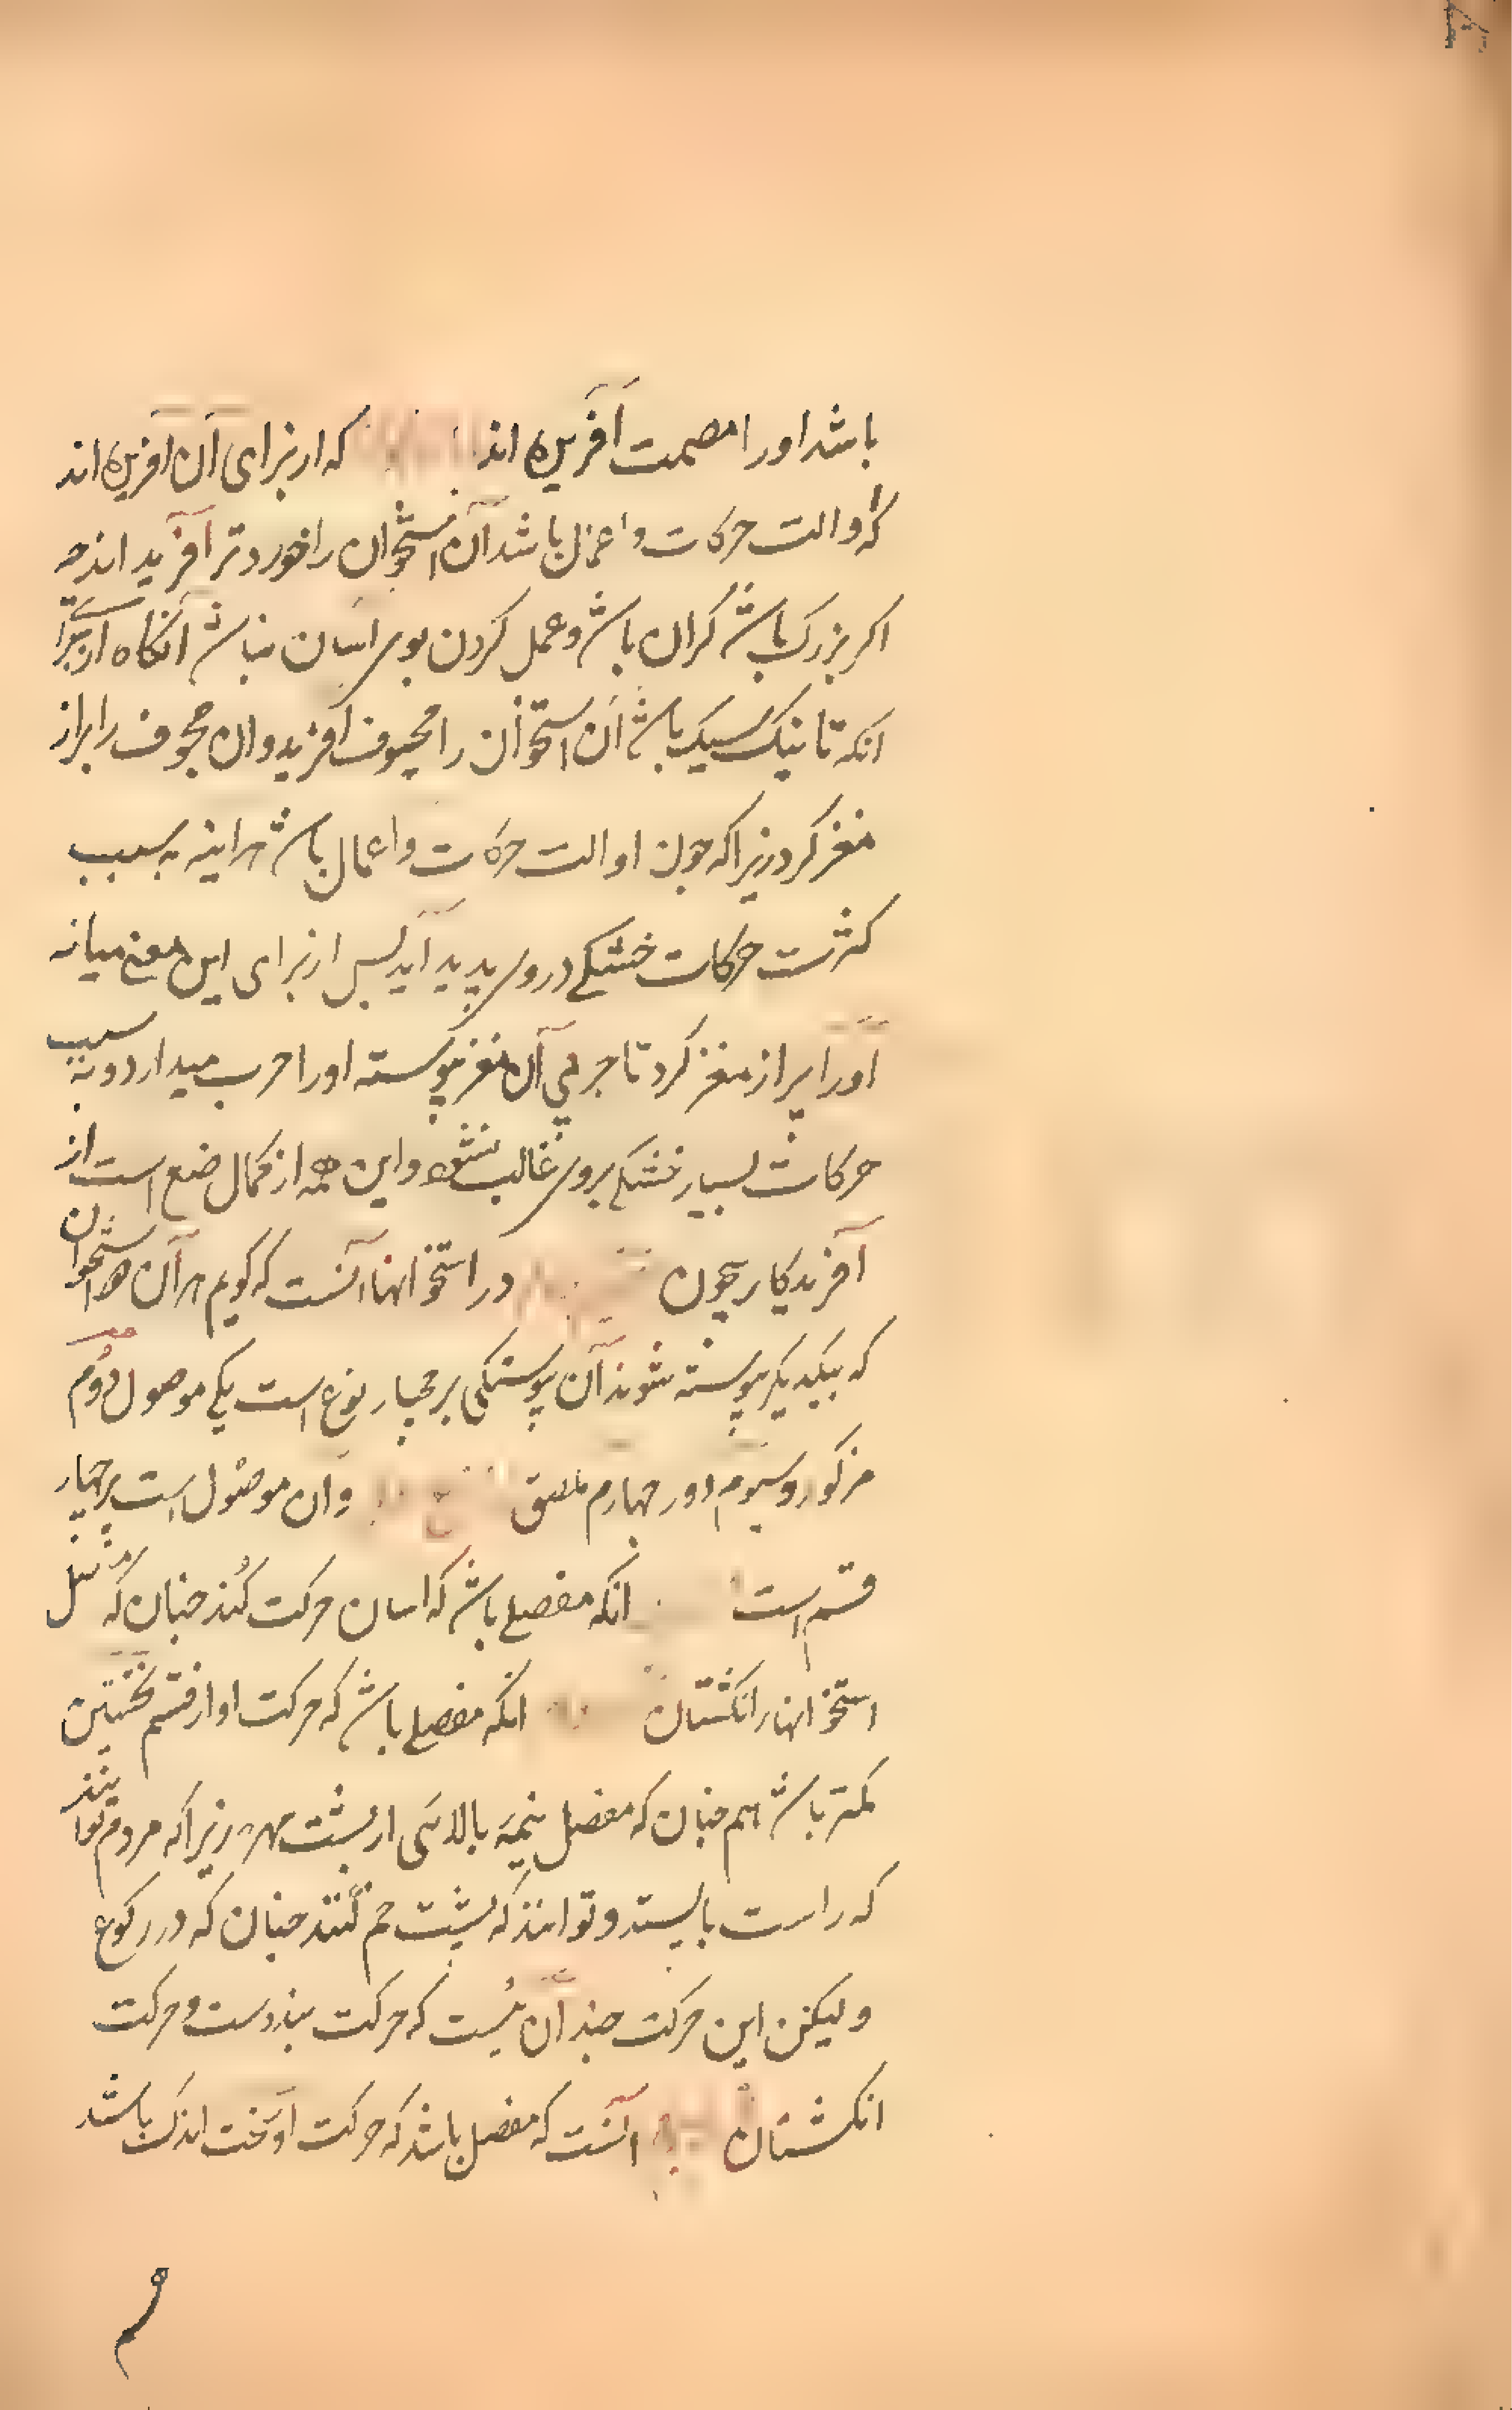 باشد اورا مصمت آفریده اند که از برای آن آفریده اند
که او الت حرکات و اعمال باشد آن استخوان را خوردتر آفریده اند چه
اکر بزرک باشد کران باشد و عمل کردن بوی اسان نباشد انکاه از برای
انکه تا نیک سبک باشد آن استخوان را مجوف آفرید و ان مجوف را پر از
مغز کرد زیرا که چون او الت حرکات و اعمال باشد هراینه به سبب
کثرت حرکات خشکی در وی پدید آید پس از برای این معنی میانه
اورا پر از مغز کرد تا چربی آن مغز پیوسته اورا چرب میدارد و به سبب
حرکات بسیار خشکی بروی غالب نشود و این همه از کمال صنع است از
آفریدکار بیچون در استخوانها آنست که کویم هر آن دو استخوان
که بیکدیکر پیوسته شوند آن پیوستکی بر چهار نوع است یکی موصول دوم
مرکوز و سیوم دور چهارم ملصق و ان موصول است بر چهار
قسم است انکه مفصلی باشد که اسان حرکت کند چنان که مثل
استخوانهاء انکشتان انکه مفصلی باشد که حرکت او از قسم نخستین
کمتر باشد هم چنان که مفصل نیمه بالائی از پشت مهره زیرا که مردم توانند
که راست بایستد و توانند که پشت خم کنند چنان که در رکوع
ولیکن این حرکت چندان نیست که حرکت بند دست و حرکت
انکشتان آنست که مفصل باشد که حرکت او سخت اندک باشد